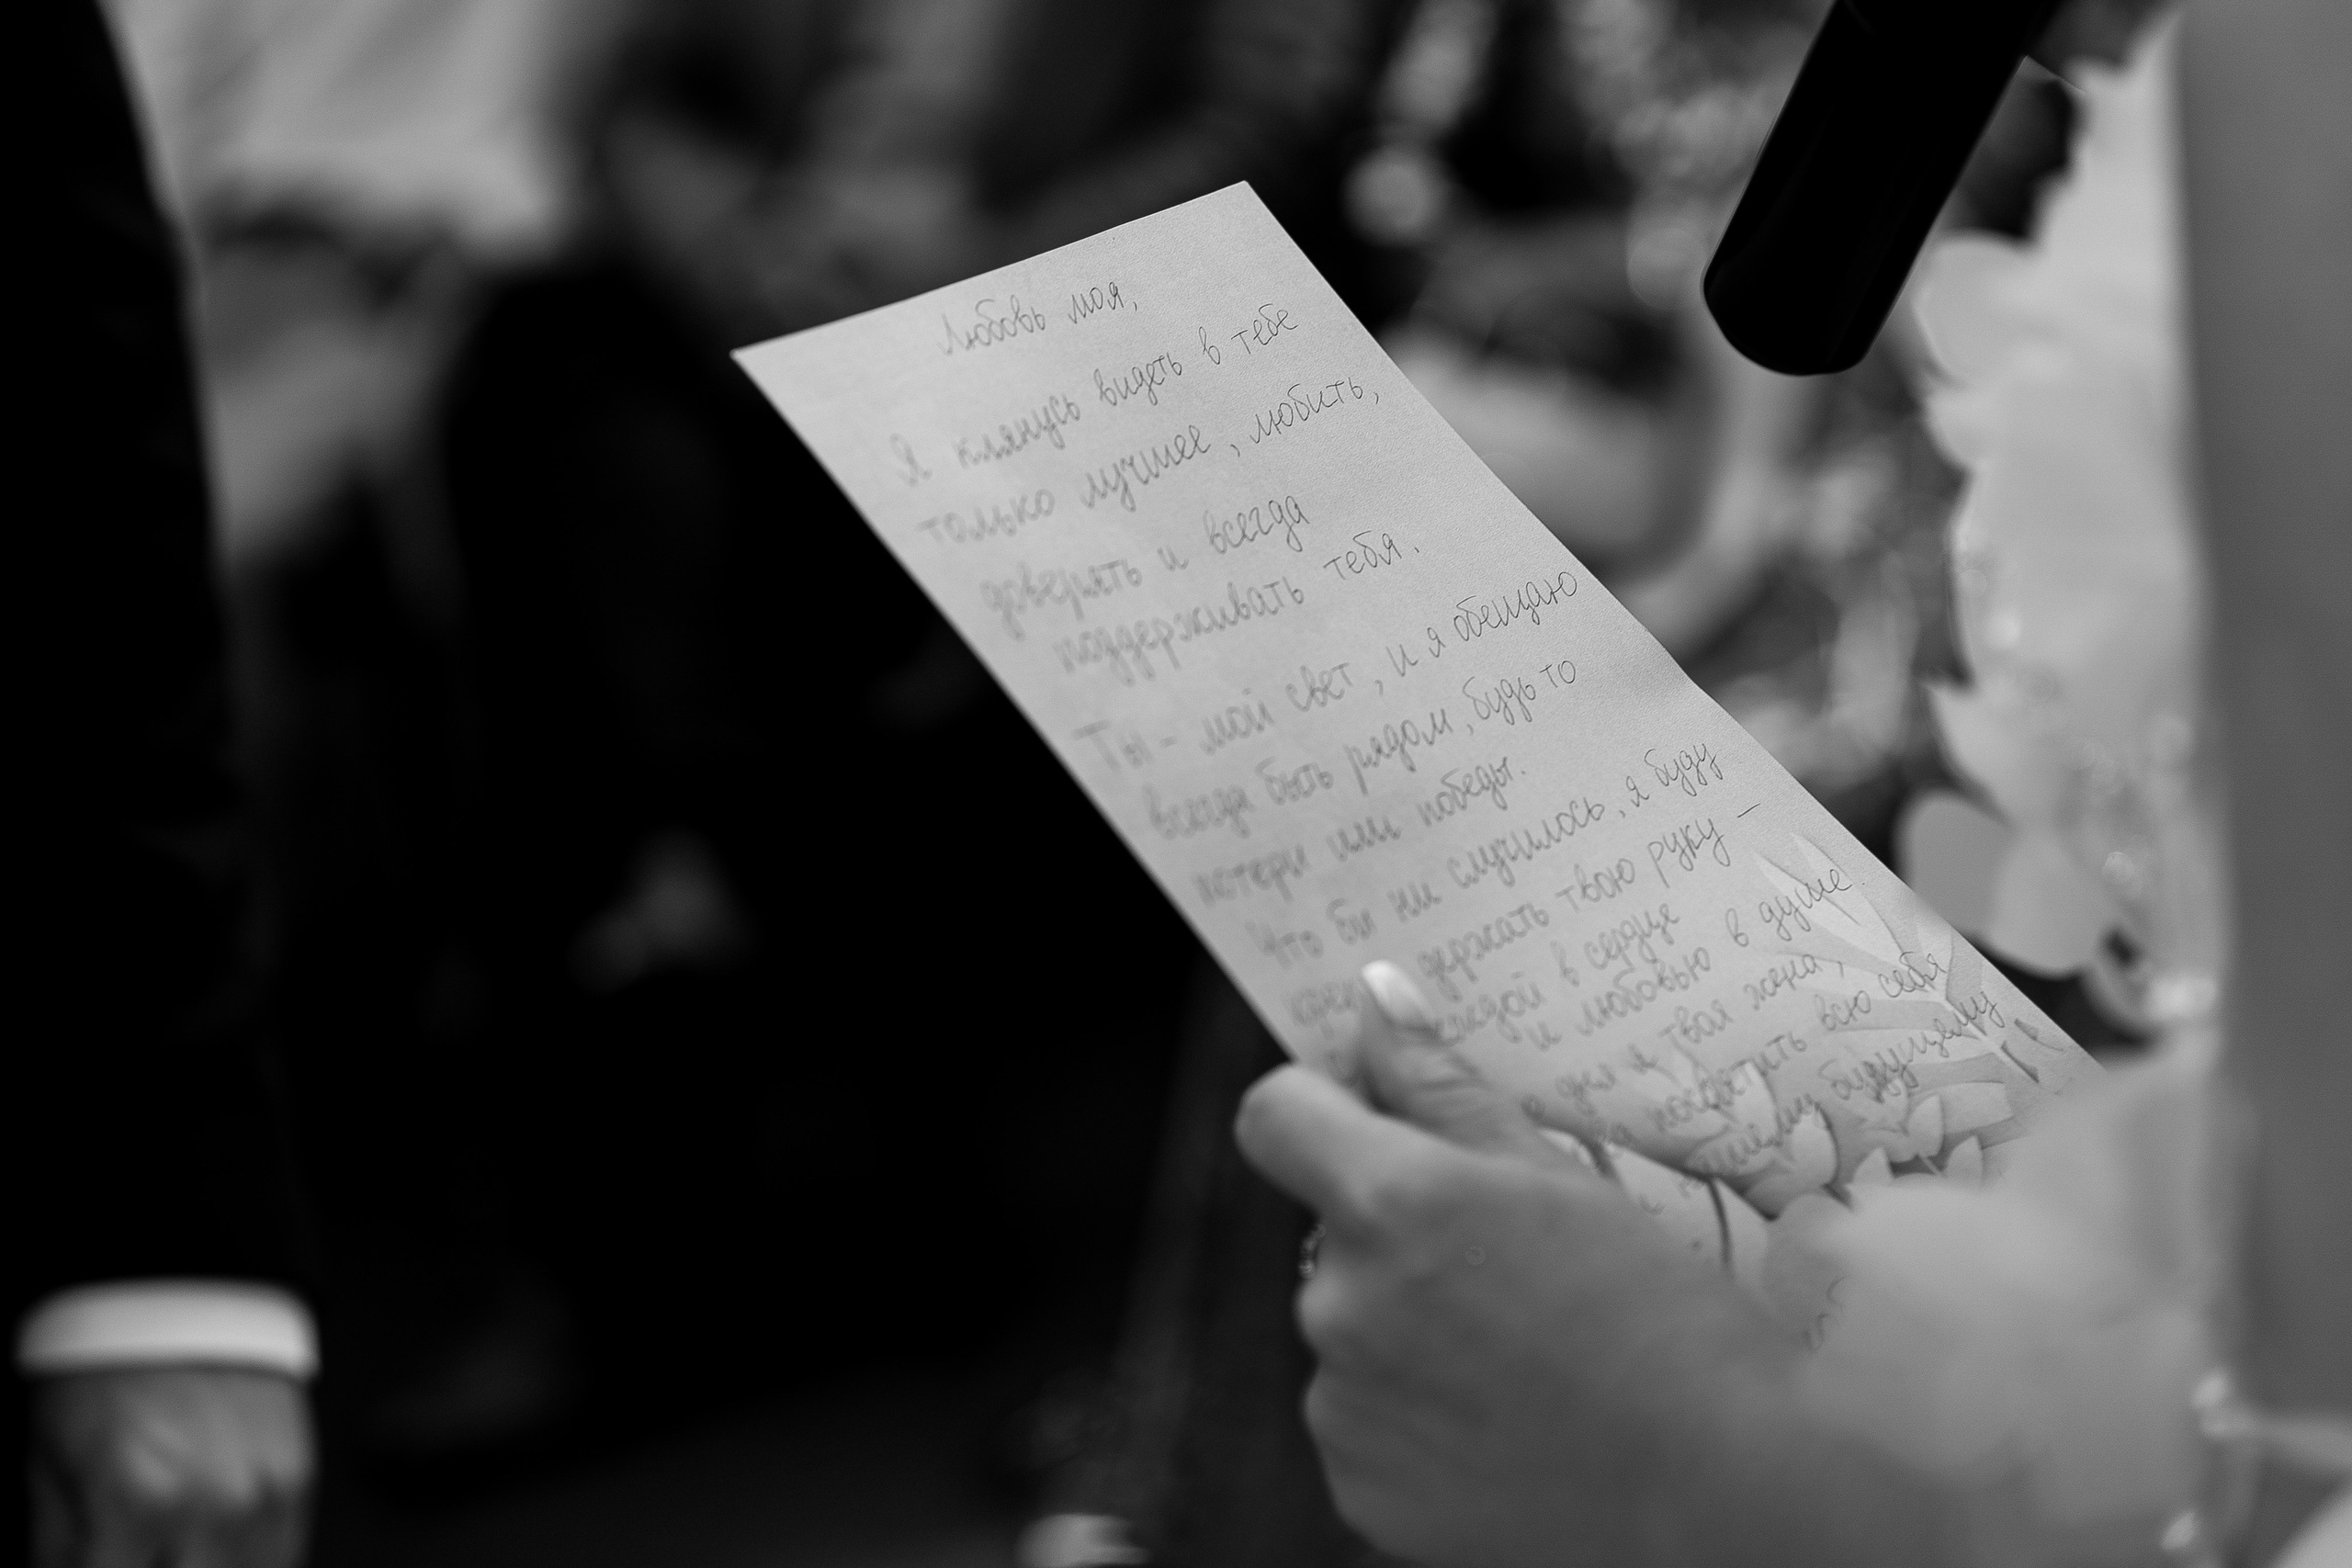 Любовь моя,
Я клянусь видеть в тебе
только лучшее, любить,
доверять и всегда
поддерживать тебя.
Ты - мой свет, и я обещаю
всегда быть рядом, будь то
потери или победы.
Что бы ни случилось, я буду
держать твою руку –
в сердце
и любовью в душе.
дня я твоя жена,
посвятить всю себя
и нашему будущему